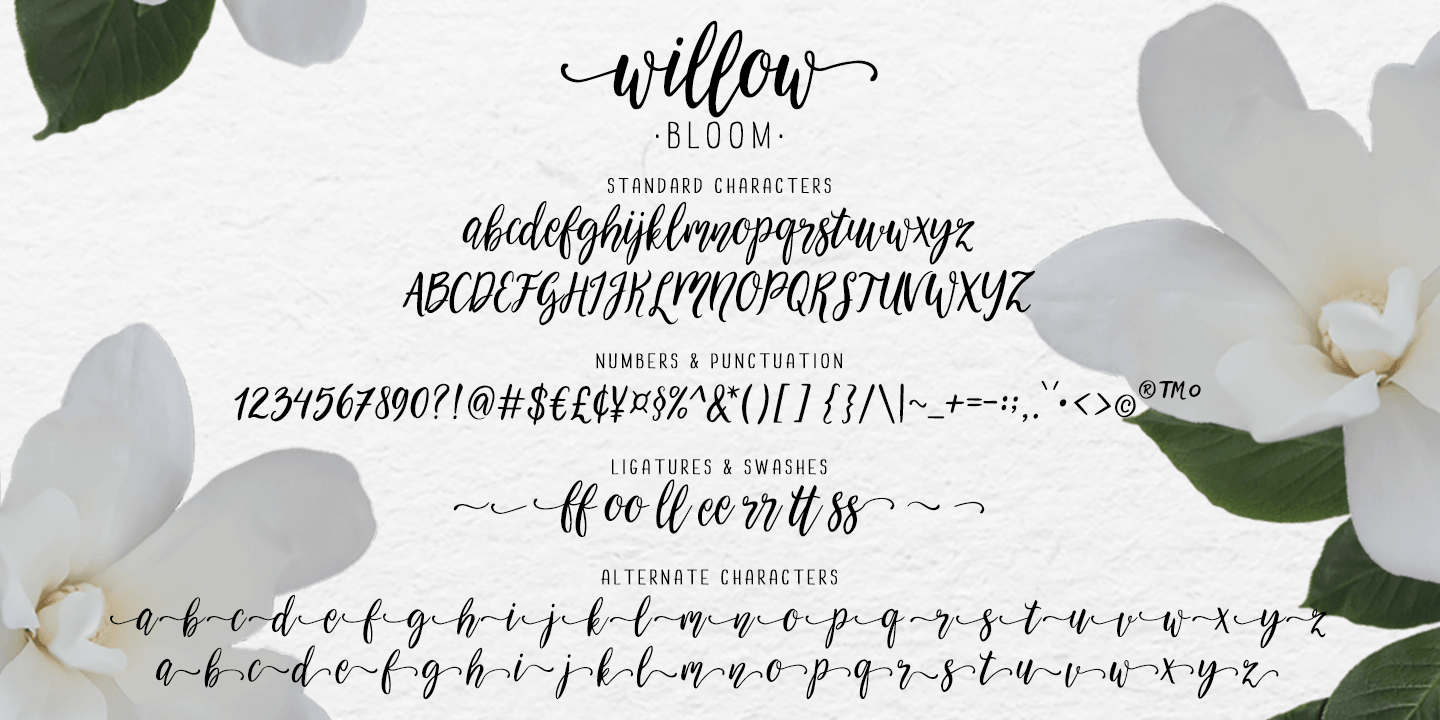 willow
·BLOOM·
STANDARD CHARACTERS
abcdefghijklmnopqrstuvwxyz
ABCDEFGHIJKLMNOPQRSTUVWXYZ
NUMBERS & PUNCTUATION
1234567890?!@#$€£¢¥¤§%^&*()[]{}/\|~_+=-:;,.`´•<>©®™o
LIGATURES & SWASHES
ff oo ll ee rr tt ss
ALTERNATE CHARACTERS
a b c d e f g h i j k l m n o p q r s t u v w x y z
a b c d e f g h i j k l m n o p q r s t u v w x y z